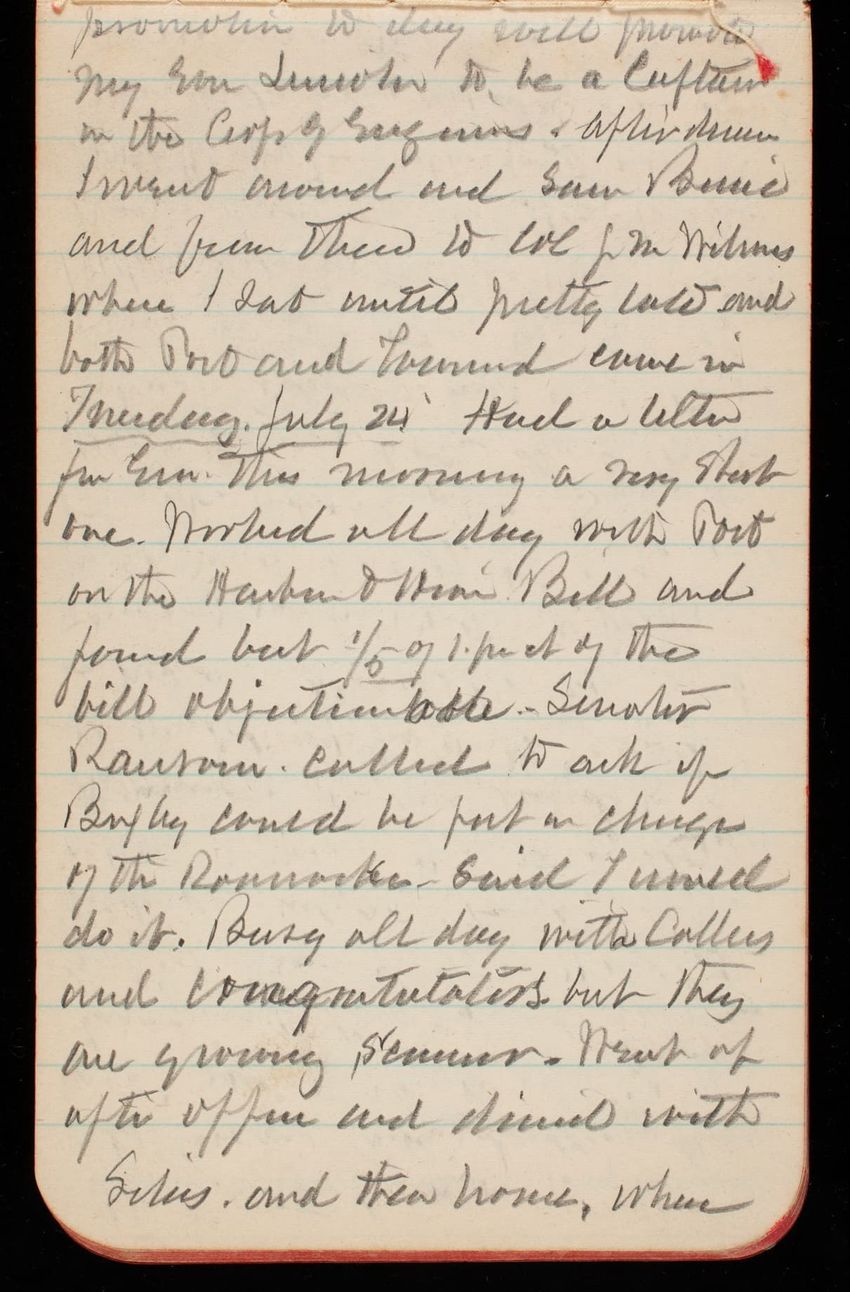 promotion to day will promote
my son Lincoln to be a Captain
in the Corp of Engineers. After dinner
I went around and saw
and from there to Col J M Wilson
where I sat until pretty late and
both Port and Townsend came in
Tuesday. July 24 Had a letter
fm Em. This morning a very short
one. Worked all day with Port
on the Harbor & River Bill and
found but 1/5 of 1. per ct of the
bill objectionable. - Senator
Ransom. called to ask if
Bixby could be put in charge
of the Roanoke - Said I would
do it. Busy all day with Callers
and congratulators but they
are growing scarcer. Went up
after office and dined with
and then home, where